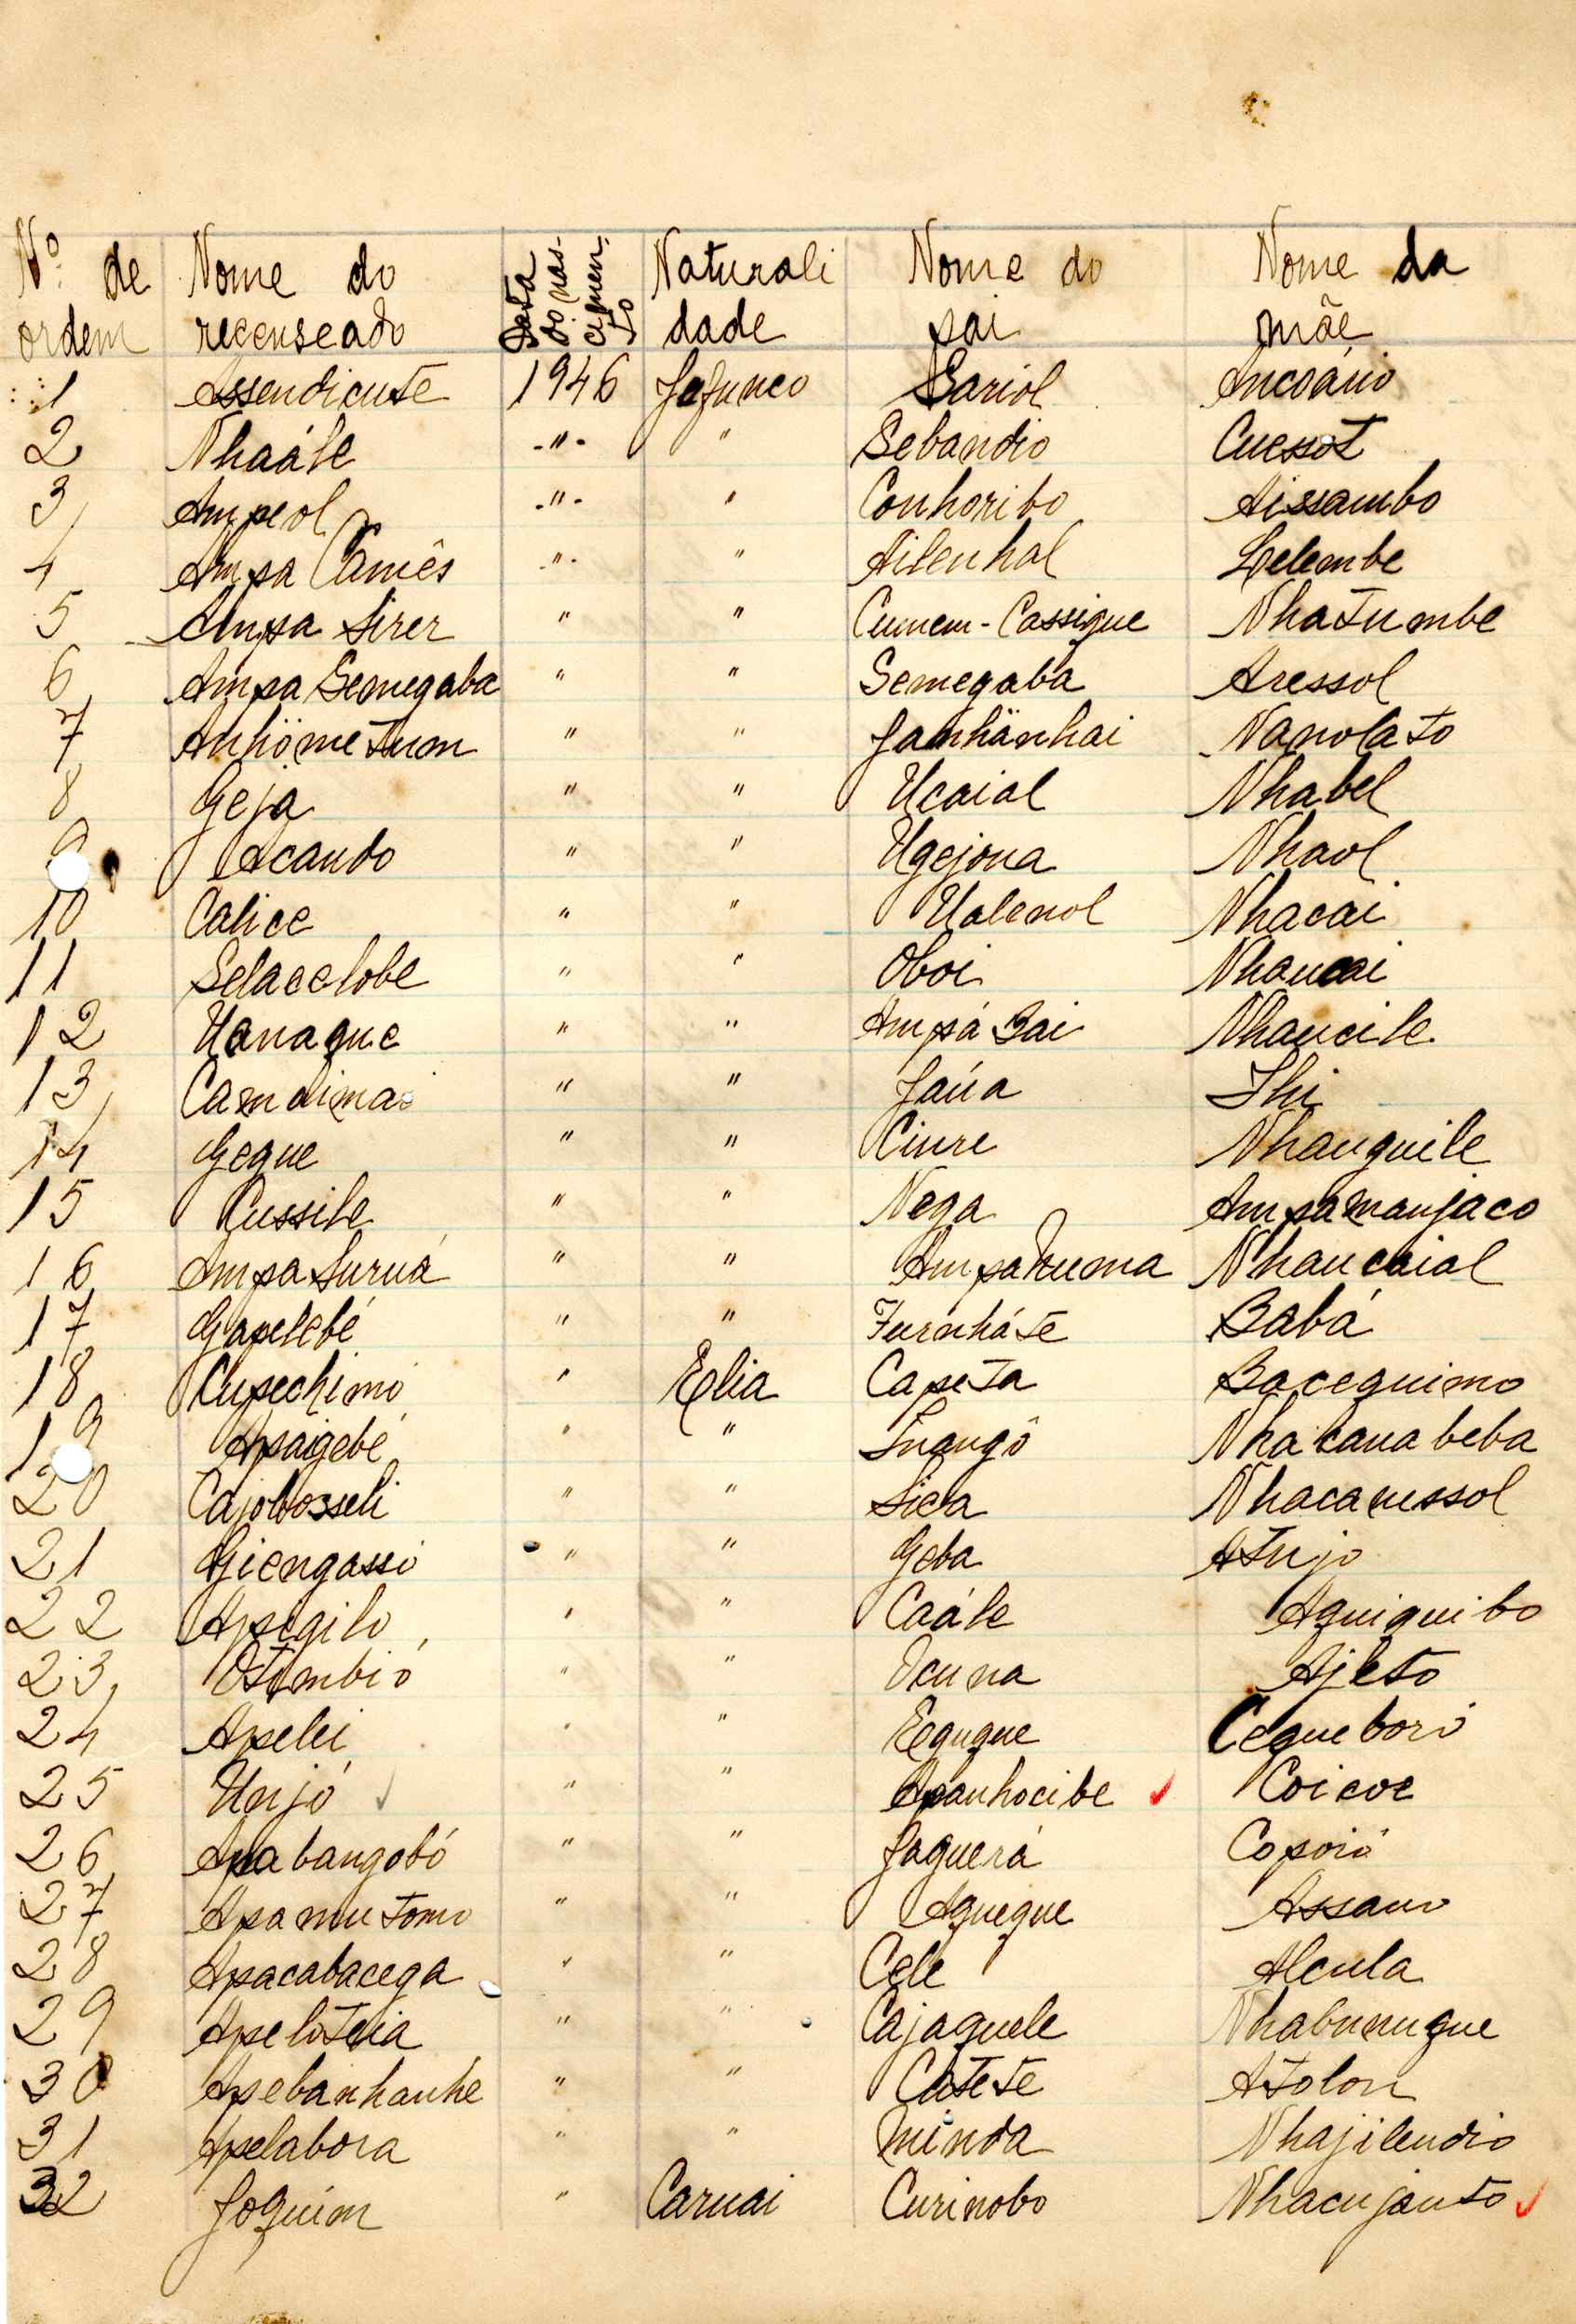 Nº de ordem Nome do recenseado Data do nascimento Naturalidade Nome do pai Nome da mãe
1 Assendicute 1946 Jefunco Sariol Ancoáio
2 Nhaále -"- " Sebandio Cuessot
3 Ampeol -"- " Conhoribo Aissambo
4 Ampa Camês -"- " Ailenhal Lelembe
5 Ampa Sirer " " Cumem-Cassigue Nhatumbe
6 Ampa Semegaba " " Semegaba Aressol
7 Anhömetum " " Jamhänhai Nanolato
8 Geja " " Ucaial Nhabel
9 Acando " " Ugejona Nhaol
10 Calice " " Ualenol Nhacai
11 Selacelobe " " Oboi Nhaucai
12 Uanaque " " Ampá Bai Nhaucile
13 Camdimai " " Jaúa Ihi
14 Geque " " Ciure Nhauguile
15 Cussile " " Nega Ampamanjaco
16 Ampa Suruá " " Nhaucaial
17 Gapelebé " " Furnháte Babá
18 Cupechimó " Elia Capeta Bacequimo
19 Apaigebé " " Inangô Nhacanabeba
20 Cajobosseli " " Sica Nhacanessol
21 Giengassó " " Geba Atujo
22 Apegilo " " Caále Aguiguibo
23 Otembió " " Ocuna Ajeto
24 Apelei " " Egugue Cequeboró
25 Unjó " " Apanhocibe Coicoe
26 Apabangobó " " Jaguerá Copoió
27 Apamutomo " " Aguegue Assano
28 Apacabacega " " Cele Alcula
29 Apeloteia " " Cajaguele Nhabunugue
30 Apebanhanhe " " Catete Atolon
31 Apelabora " " Minda Nhajilendio
32 Joquim " Caruai Curinobo Nhacujanto